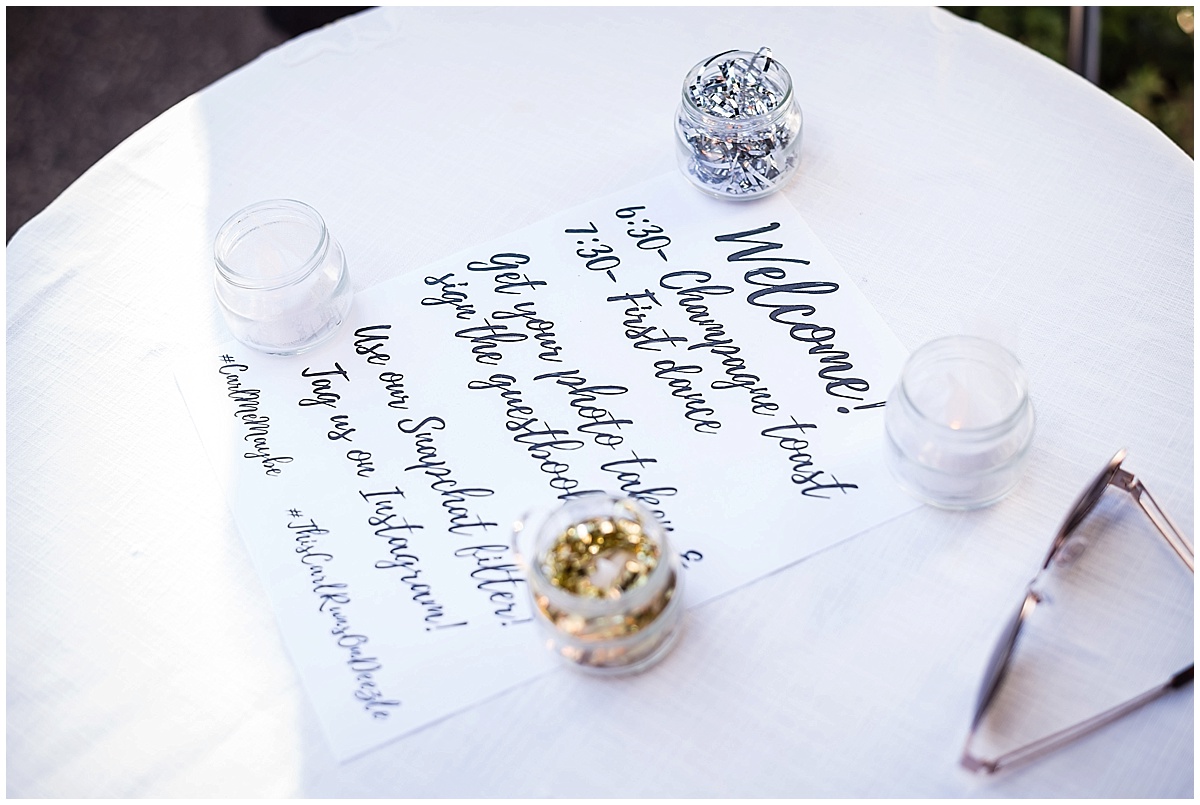 Welcome!
6:30- Champagne toast
7:30- First dance
Get your photo taken &
sign the guestbook
Use our Snapchat filter!
Tag us on Instagram!
#CarlMeMaybe #ThisCarlRunsOnDeezle